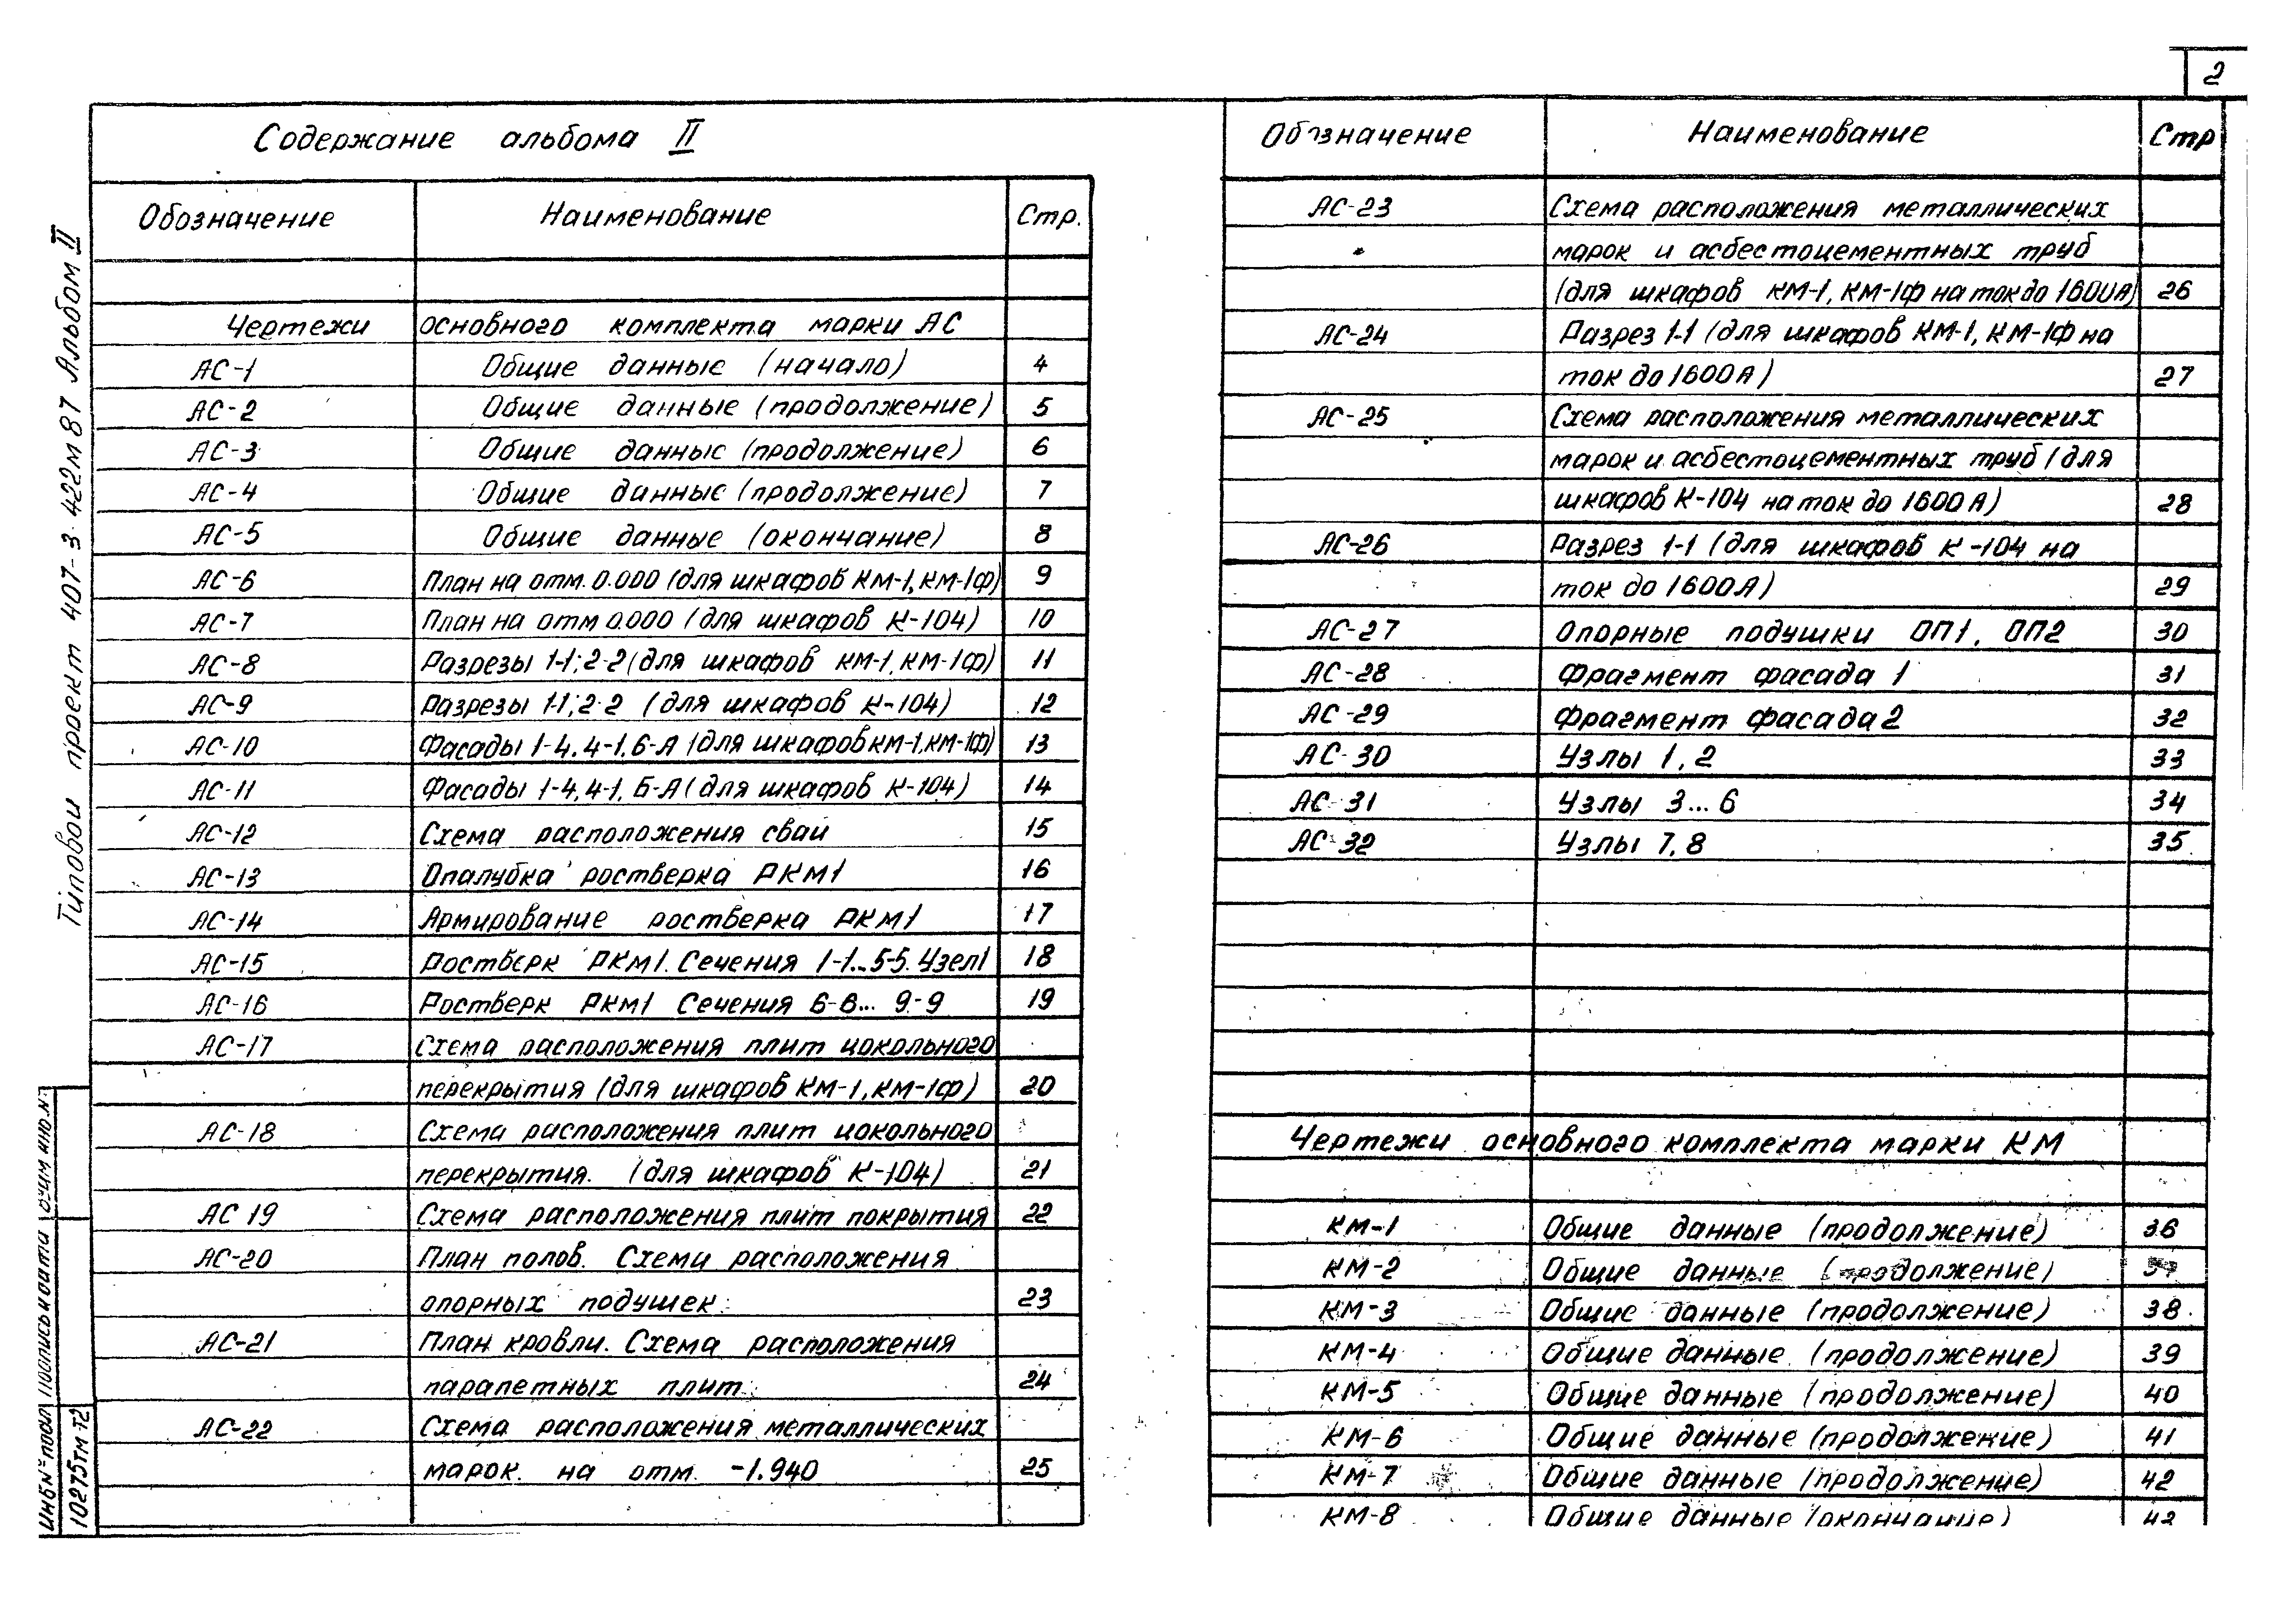 2
Содержание альбома II
Обозначение Наименование Стр.
Чертежи основного комплекта марки АС
АС-1 Общие данные (начало) 4
АС-2 Общие данные (продолжение) 5
АС-3 Общие данные (продолжение) 6
АС-4 Общие данные (продолжение) 7
АС-5 Общие данные (окончание) 8
АС-6 План на отм. 0.000 (для шкафов КМ-1, КМ-1Ф) 9
АС-7 План на отм 0.000 (для шкафов К-104) 10
АС-8 Разрезы 1-1; 2-2 (для шкафов КМ-1, КМ-1Ф) 11
АС-9 Разрезы 1-1; 2-2 (для шкафов К-104) 12
АС-10 Фасады 1-4, 4-1, Б-А (для шкафов КМ-1, КМ-1Ф) 13
АС-11 Фасады 1-4, 4-1, Б-А (для шкафов К-104) 14
АС-12 Схема расположения свай 15
АС-13 Опалубка ростверка РКМ1 16
АС-14 Армирование ростверка РКМ1 17
АС-15 Ростверк РКМ1. Сечения 1-1...5-5. Узел 1 18
АС-16 Ростверк РКМ1 Сечения 6-6... 9-9 19
АС-17 Схема расположения плит цокольного
перекрытия (для шкафов КМ-1, КМ-1Ф) 20
АС-18 Схема расположения плит цокольного
перекрытия. (для шкафов К-104) 21
АС 19 Схема расположения плит покрытия 22
АС-20 План полов. Схеми расположения
опорных подушек 23
АС-21 План кровли. Схема расположения
парапетных плит 24
АС-22 Схема расположения металлических
марок. на отм. -1.940 25
Обозначение Наименование Стр
АС-23 Схема расположения металлических
марок и асбестоцементных труб
(для шкафов КМ-1, КМ-1Ф на ток до 1600А) 26
АС-24 Разрез 1-1 (для шкафов КМ-1, КМ-1Ф на
ток до 1600А) 27
АС-25 Схема расположения металлических
марок и асбестоцементных труб (для
шкафов К-104 на ток до 1600 А) 28
АС-26 Разрез 1-1 (для шкафов К-104 на
ток до 1600А) 29
АС-27 Опорные подушки ОП1, ОП2 30
АС-28 Фрагмент фасада 1 31
АС-29 Фрагмент фасада 2 32
АС-30 Узлы 1, 2 33
АС-31 Узлы 3...6 34
АС-32 Узлы 7, 8 35
Чертежи основного комплекта марки КМ
КМ-1 Общие данные (продолжение) 36
КМ-2 Общие данные (продолжение)
КМ-3 Общие данные (продолжение) 38
КМ-4 Общие данные (продолжение) 39
КМ-5 Общие данные (продолжение) 40
КМ-6 Общие данные (продолжение) 41
КМ-7 Общие данные (продолжение) 42
КМ-8 Общие данные (окончание)
Типовой проект 407-3-422м87 Альбом II
Инв № подл Подпись и дата
10275тм-т2